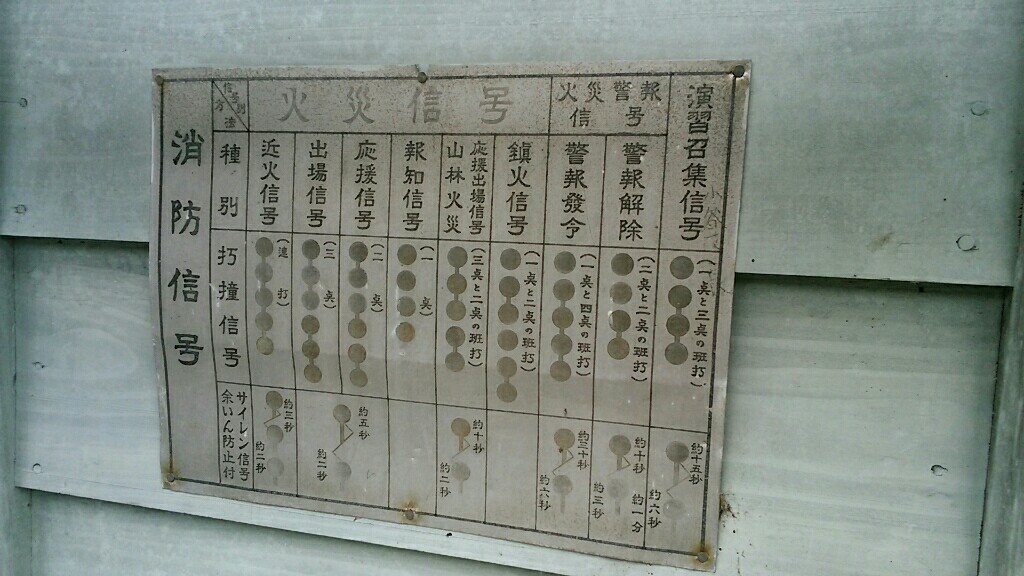 消防信号
信号別
方法
火災信号
火災警報
信号
演習召集信号
種別
近火信号
出場信号
応援信号
報知信号
山林火災
応援出場信号
鎮火信号
警報發令
警報解除
打撞信号
(連打)
(三点)
(二点)
(一点)
(三点と二点の班打)
(一点と二点の班打)
(一点と四点の班打)
(二点と二点の班打)
(一点と三点の班打)
サイレン信号
余いん防止付
約三秒
約二秒
約五秒
約二秒
約十秒
約二秒
約三十秒
約六秒
約十秒
約一分
約三秒
約十五秒
約六秒